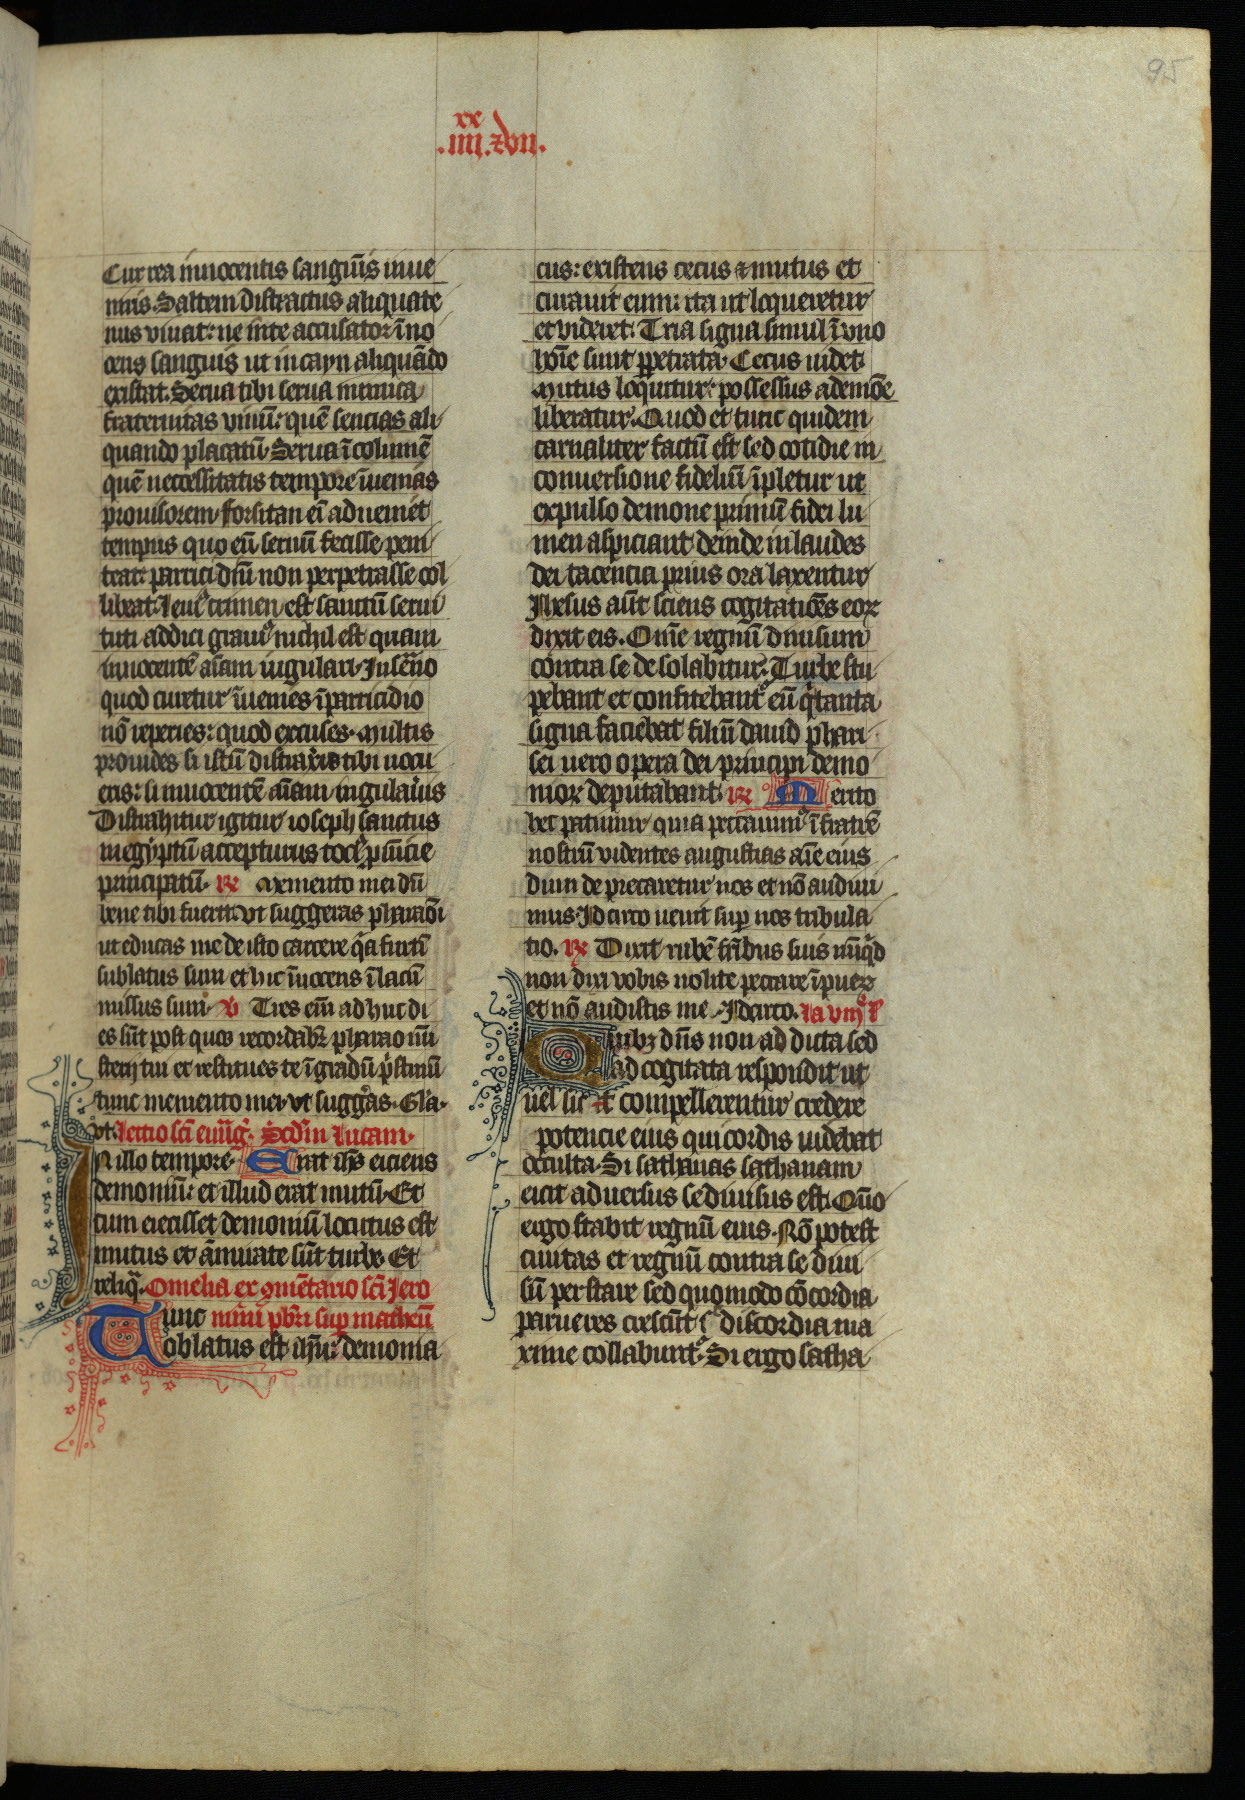 95
xx
.iiii. ⁊ xvii.
Cur rea innocentis sanguīs inue
niris. Saltem distractus aliquate
nus viuat: ne inte accusator īno
cens sanguis ut in cayn aliquādo
existat. Serua tibi serua inimica
fraternitas viuū: quē sencias ali
quando placatū. Serua īcolumē
quē neccessitatis tempore īuenias
prouisorem. forsitan eī adueniet
tempus quo eū seruū fecisse peni
teat: parricidiū non perpetrasse col
libeat. leue crimen est sanctū serui
tuti addici graue nichil est quam
innocentē aīam iugulari. In serūo
quod curetur īuenies īparricidio
nō reperies: quod excuses. Multis
prouides si istū distraxeris tibi nocu
eris: si innocentē aīam iugulauīs
Distrahitur igitur ioseph sanctus
inegyptū accepturus toci prouīcie
principatū. R̄ Memento mei dū
bene tibi fuerit. vt suggeras pharaōi
ut educas me de isto carcere q̄a furtī
sublatus sum et hic īnocens ī lacū
missus sum. V̄ Tres eīm adhuc di
es sūt post quos recordabʒ pharao mī
sterij tui et restituet te ī gradū pʳstinū
tunc memento mei. vt suggʳas. Glʳa.
vt. lectio scī euūg. Scdm lucam.
In illo tempore. Erat ihs eiciens
demoniū: et illud erat mutū. Et
cum eiecisset demoniū locutus est
mutus et āmirate sūt turbe. Et
reliq̄. Omelia ex 9mētario scī Jero
Tunc nimi pb̄ri sup matheū
oblatus est ihū: demonia
cus: existens cecus ⁊ mutus et
curauit eum: ita ut loqueretur
et videret. Tria signa simul ī vno
hoīe sunt ꝑpetrata. Cecus uidet
Mutus loquitur: possessus a demōe
liberatur. Quod et tunc quidem
carnaliter factū est sed cotidie in
conuersione fideliū īpletur ut
expulso demone primū fidei lu
men aspiciant deinde in laudes
dei tacentia prius ora laxentur
Ihesus aūt sciens cogitatiōes eoꝝ
dixit eis. Om̄e regnū diuisum
contra se desolabitur. Turbe stu
pebant et confitebant̄ eū q̄ tanta
signa faciebat filiū dauid phari
sei uero opera dei principi demo
nioꝝ deputabant R̄ Merito
hec patimur quia peccauim⁹ ī fratrē
nostrū videntes angustias aīe eius
dum deprecaretur nos et nō audiui
mus Idcirco uenit sup nos tribula
tio. R̄ Dixit rubē fr̄ibus suis nūq̄d
non dixi vobis nolite peccare ī pueꝝ
et nō audistis me. Idcirco. la viij l̄
Quibʒ dn̄s non ad dicta sed
ad cogitata respondit ut
uel sic ⁊ compellerentur credere
potencie eius qui cordis uidebat
occulta. Si sathanas sathanam
eicit aduersus se diuisus est. Quō
ergo stabit regnū eius. Nō potest
ciuitas et regnū contra se diui
sū perstare sed quomodo cōcordia
parue res crescūt sic discordia ma
xime collabunt̄. Si ergo satha